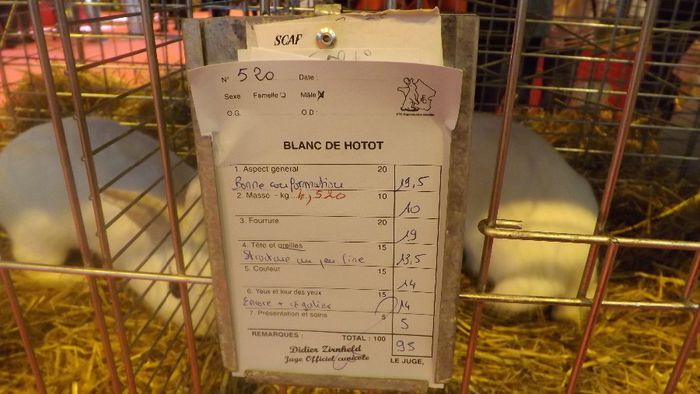 SCAF
N° 520 Date
Sexe Femelle Mâle X
O.G. O D :
BLANC DE HOTOT
1. Aspect general 20 19,5
Bonne conformation
2. Masse - kg 4,520 10 10
3. Fourrure 20 19
4. Tête et oreilles 15 13,5
Structure un peu fine
5. Couleur 15 14
6. Yeux et tour des yeux 15 14
Encore + régulier
7. Présentation et soins 5 5
REMARQUES : TOTAL : 100 95
Didier Zirnheld LE JUGE,
Juge Officiel cunicole